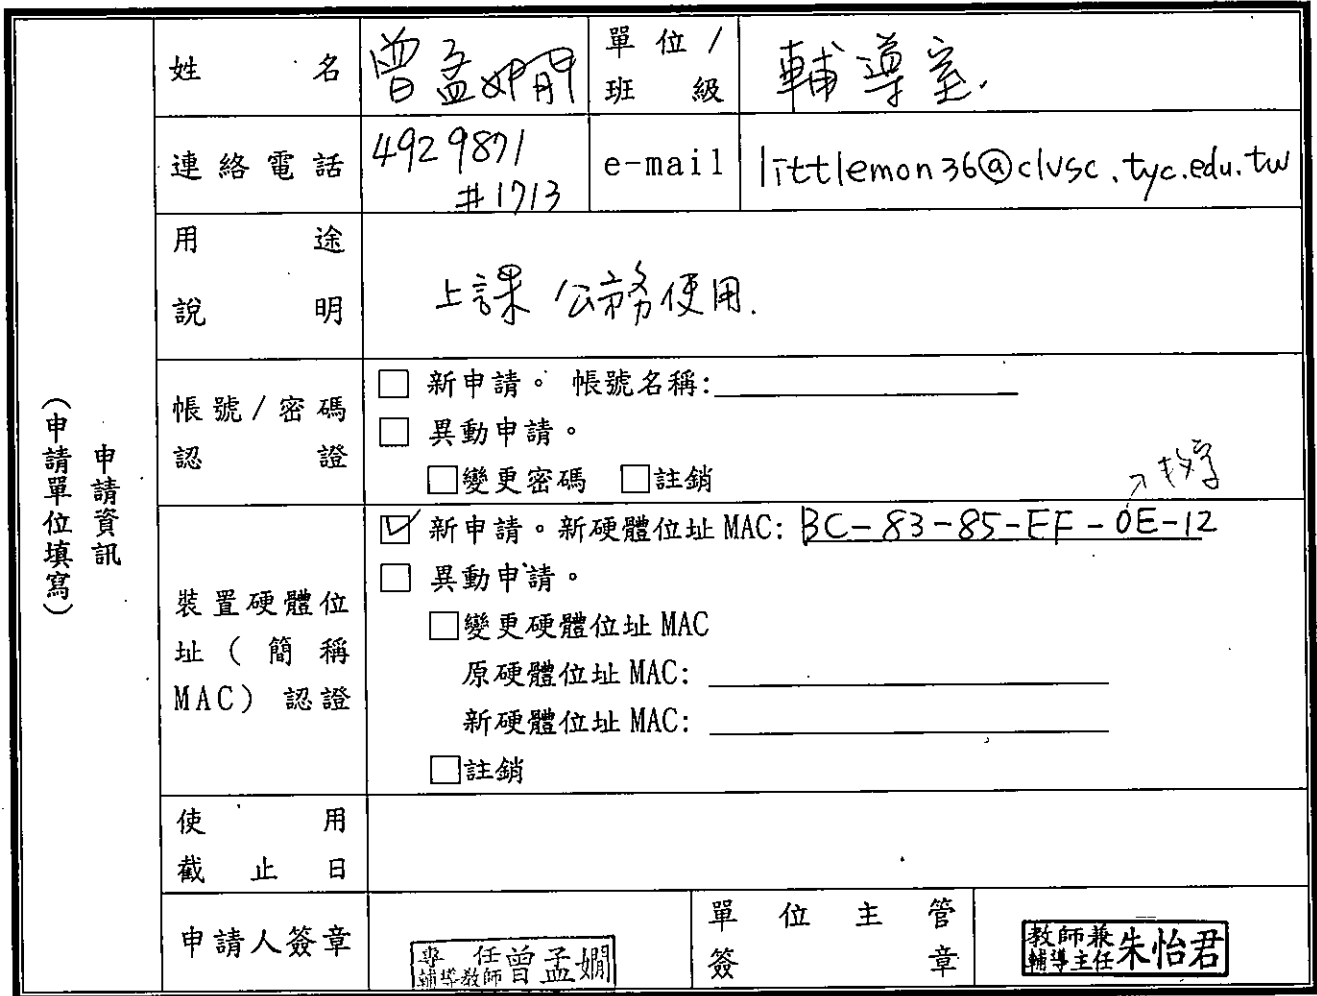 (申請單位填寫)
申請資訊
姓名 曾孟嫺 單位/班級 輔導室.
連絡電話 4929871 #1713 e-mail littlemon36@clvsc.tyc.edu.tw
用途說明 上課/公務使用.
帳號/密碼認證
□ 新申請。 帳號名稱:
□ 異動申請。
□變更密碼 □註銷
裝置硬體位址(簡稱MAC)認證
☑ 新申請。新硬體位址 MAC: BC-83-85-EF-0E-12
□ 異動申請。
□變更硬體位址 MAC
原硬體位址 MAC:
新硬體位址 MAC:
□註銷
使用截止日
申請人簽章 專任輔導教師 曾孟嫺 單位主管簽章 教師兼輔導主任 朱怡君